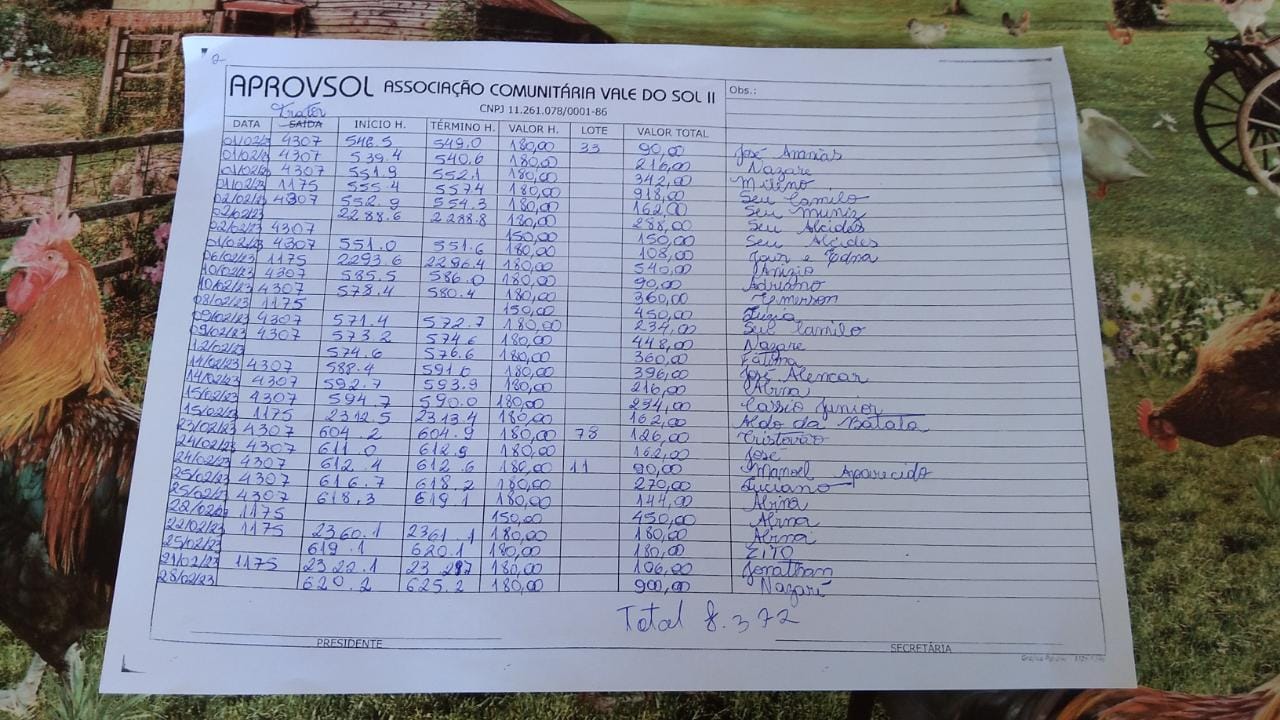 2-
APROVSOL ASSOCIAÇÃO COMUNITÁRIA VALE DO SOL II
CNPJ 11.261.078/0001-86
Obs.:
Trator
DATA SAÍDA INÍCIO H. TÉRMINO H. VALOR H. LOTE VALOR TOTAL
01/02/23 4307 548.5 549.0 180,00 33 90,00 José Ananias
01/02/23 4307 539.4 540.6 180,00 216,00 Nazare
01/02/23 4307 551.9 552.1 180,00 342,00
01/02/23 1175 555.4 557.4 180,00 918,00 Seu Camilo
02/02/23 4307 552.9 554.3 180,00 162,00 Seu Muniz
02/02/23 2288.6 2288.8 180,00 288,00 Seu Alcides
02/02/23 4307 150,00 150,00 Seu Alcides
01/02/23 4307 551.0 551.6 180,00 108,00 e Edna
06/02/23 1175 2293.6 2296.4 180,00 540,00 Anizio
10/02/23 4307 585.5 586.0 180,00 90,00 Adriano
10/02/23 4307 578.4 580.4 180,00 360,00
08/02/23 1175 150,00 450,00 Luzia
09/02/23 4307 571.4 572.7 180,00 234,00 Seu Camilo
09/02/23 4307 573.2 574.6 180,00 448,00 Nazare
12/02/23 574.6 576.6 180,00 360,00 Fatima
14/02/23 4307 588.4 591.6 180,00 396,00 José Alencar
14/02/23 4307 592.7 593.9 180,00 216,00 Abina
15/02/23 4307 594.7 590.0 180,00 234,00 Cassio Junior
15/02/23 1175 2312.5 2313.4 180,00 162,00 Aldo da Batata
23/02/23 4307 604.2 604.9 180,00 78 126,00 Cristovão
24/02/23 4307 611.0 612.9 180,00 162,00 José
24/02/23 4307 612.4 612.6 180,00 11 90,00 Manoel Aparecido
25/02/23 4307 616.7 618.2 180,00 270,00 Luciano
25/02/23 4307 618.3 619.1 180,00 144,00 Abina
22/02/23 1175 150,00 450,00 Abina
22/02/23 1175 2360.1 2361.1 180,00 180,00 Abina
25/02/23 619.1 620.1 180,00 180,00 ZITO
21/02/23 1175 2322.1 180,00 106,00 Jonathan
28/02/23 620.2 625.2 180,00 900,00 Nazaré
Total 8.372
PRESIDENTE SECRETÁRIA